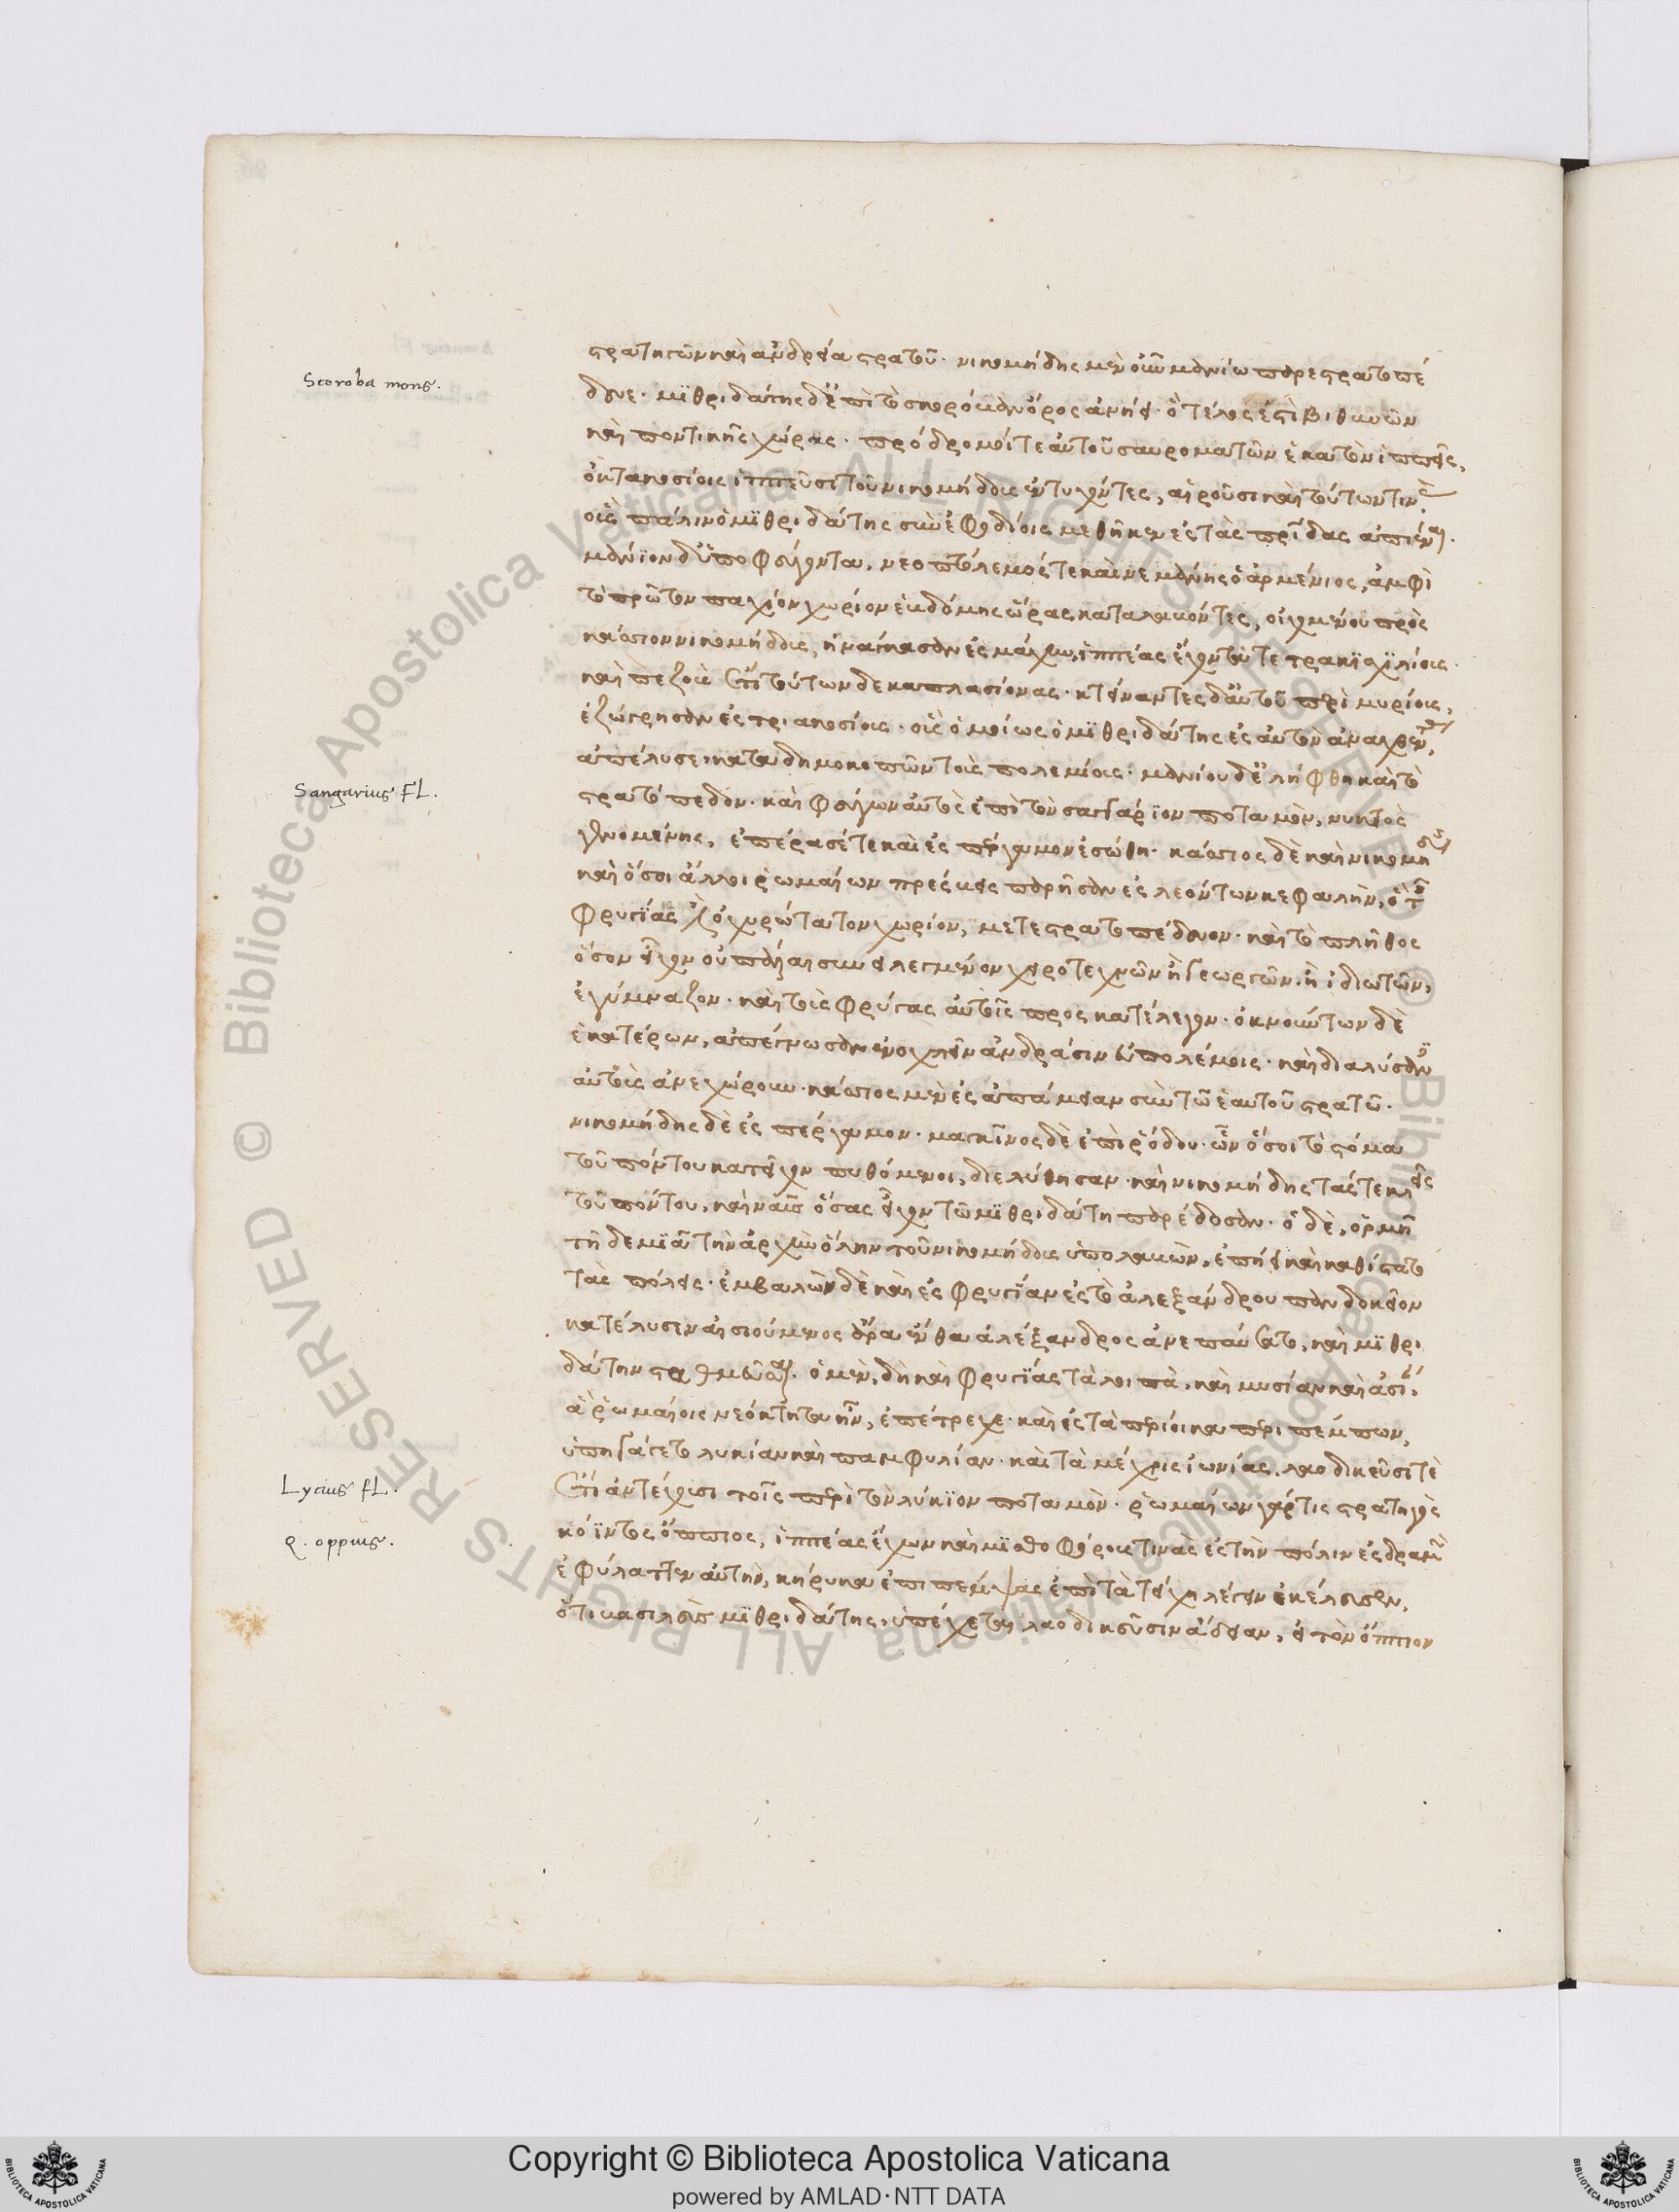 Scoroba mons.
Sangarius FL.
Lycius fL.
Q. oppius.
στρατηγῶν καὶ ἀνδρεία στρατοῦ. νικομήδης μὲν οὖν μανίω παρεστρατοπέ
δευε. μιθριδάτης δ' ἐπὶ τὸ σκορόβαν ὄρος ἀνήει. ὃ τέλος ἐστὶ βιθυνῶν
καὶ ποντικῆς χώρας. πρόδρομοί τε αὐτοῦ σαυροματῶν ἑκατὸν ἱππεῖς,
ὀκτακοσίοις ἱππεῦσι τοῦ νικομήδους ἐντυχόντες, αἱροῦσι καὶ τούτων τινὰς
οὓς πάλιν ὁ μιθριδάτης σὺν ἐφοδίοις μεθῆκεν ἐς τὰς πατρίδας ἀπιέναι.
μάνιον δ' ὑποφεύγοντα, νεοπτόλεμός τε καὶ νεμάνης ὁ ἀρμένιος, ἀμφὶ
τὸ πρῶτον παχίον χωρίον ἑβδόμης ὥρας καταλαβόντες, οἰχομένου πρὸς
κάσσιον νικομήδους, ἠνάγκασαν ἐς μάχην, ἱππέας ἔχοντά τε τρακισχιλίους.
καὶ πεζοὺς ἐπὶ τούτων δεκαπλασίονας. κτείναντες δ' αὐτοῦ περὶ μυρίους,
ἐζώγρησαν ἐς τριακοσίους. οὓς ὁμοίως ὁ μιθριδάτης ἐς αὐτὸν ἀναχθέντας
ἀπέλυσε, καταδημοκοπῶν τοὺς πολεμίους. μανίου δ' ἐλήφθη καὶ τὸ
στρατόπεδον. καὶ φεύγων αὐτὸς ἐπὶ τὸν σαγγάριον ποταμὸν, νυκτὸς
γενομένης, ἐπέρασέ τε καὶ ἐς πέργαμον ἐσώθη. κάσσιος δὲ καὶ νικομήδης
καὶ ὅσοι ἄλλοι ῥωμαίων πρέσβεις παρῆσαν ἐς λεόντων κεφαλὴν, ὃ τῆς
φρυγίας ἐστὶ ὀχυρώτατον χωρίον, μετεστρατοπέδευον. καὶ τὸ πλῆθος
ὅσον εἶχον οὐ πάλαι συνειλεγμένον χειροτεχνῶν ἢ γεωργῶν. ἢ ἰδιωτῶν,
ἐγύμναζον. καὶ τοὺς φρύγας αὐτοῖς προσκατέλεγον. ὀκνούντων δὲ
ἑκατέρων, ἀπέγνωσαν ἐνοχλεῖν ἀνδράσιν ἀπολέμοις. καὶ διαλύσαντες
αὐτοὺς ἀνεχώρουν. κάσσιος μὲν ἐς ἀπάμειαν σὺν τῶ ἑαυτοῦ στρατῶ.
νικομήδης δὲ ἐς πέργαμον. μαγκῖνος δὲ ἐπὶ ῥόδον. ὧν ὅσοι τὸ στόμα
τοῦ πόντου κατεῖχον πυθόμενοι, διελύθησαν. καὶ νικομήδης τάς τε κλεῖς
τοῦ πόντου, καὶ ναῦς ὅσας εἶχον τῶ μιθριδάτη παρέδοσαν. ὁ δὲ, ὁρμῆ
τῆδε μιᾶ τὴν ἀρχὴν ὅλην τοῦ νικομήδους ὑπολαβὼν, ἐπήει καὶ καθίστατο
τὰς πόλεις. ἐμβαλὼν δὲ καὶ ἐς φρυγίαν ἐς τὸ ἀλεξάνδρου πανδοκεῖον
κατέλυσιν αἰσιούμενος ἄρα ἔνθα ἀλέξανδρος ἀνεπαύσατο, καὶ μιθρι
δάτην σταθμεῦσαι. ὁ μὲν, δὴ καὶ φρυγίας τὰ λοιπὰ, καὶ μυσίαν καὶ ἀσίαν
ἃ ῥωμαίοις νεόκτητα ἦν, ἐπέτρεχε. καὶ ἐς τὰ περίοικα περιπέμπων,
ὑπηγάγετο λυκίαν καὶ παμφυλίαν. καὶ τὰ μέχρις ἰωνίας. λαοδικεῦσι τὲ
ἔτι ἀντέχουσι τοῖς περὶ τὸν λύκιον ποταμὸν. ῥωμαίων γάρ τις στρατηγὸς
κόϊντος ὄππιος, ἱππέας ἔχων καὶ μισθοφόρους τινὰς ἐς τὴν πόλιν ἐσδραμὼν
ἐφύλαττεν αὐτὴν, κήρυκα ἐπιπέμψας ἐπὶ τὰ τείχη λέγειν ἐκέλευσεν,
ὅτι βασιλεὺς μιθριδάτης, ὑπέχεται λαοδικεῦσιν ἄδειαν, εἰ τὸν ὄππιον
Copyright © Biblioteca Apostolica Vaticana
powered by AMLAD·NTT DATA
© Biblioteca Apostolica Vaticana ALL RIGHTS RESERVED © Biblioteca Apostolica Vaticana ALL RIGHTS RESERVED
BIBLIOTECA APOSTOLICA VATICANA
BIBLIOTECA APOSTOLICA VATICANA